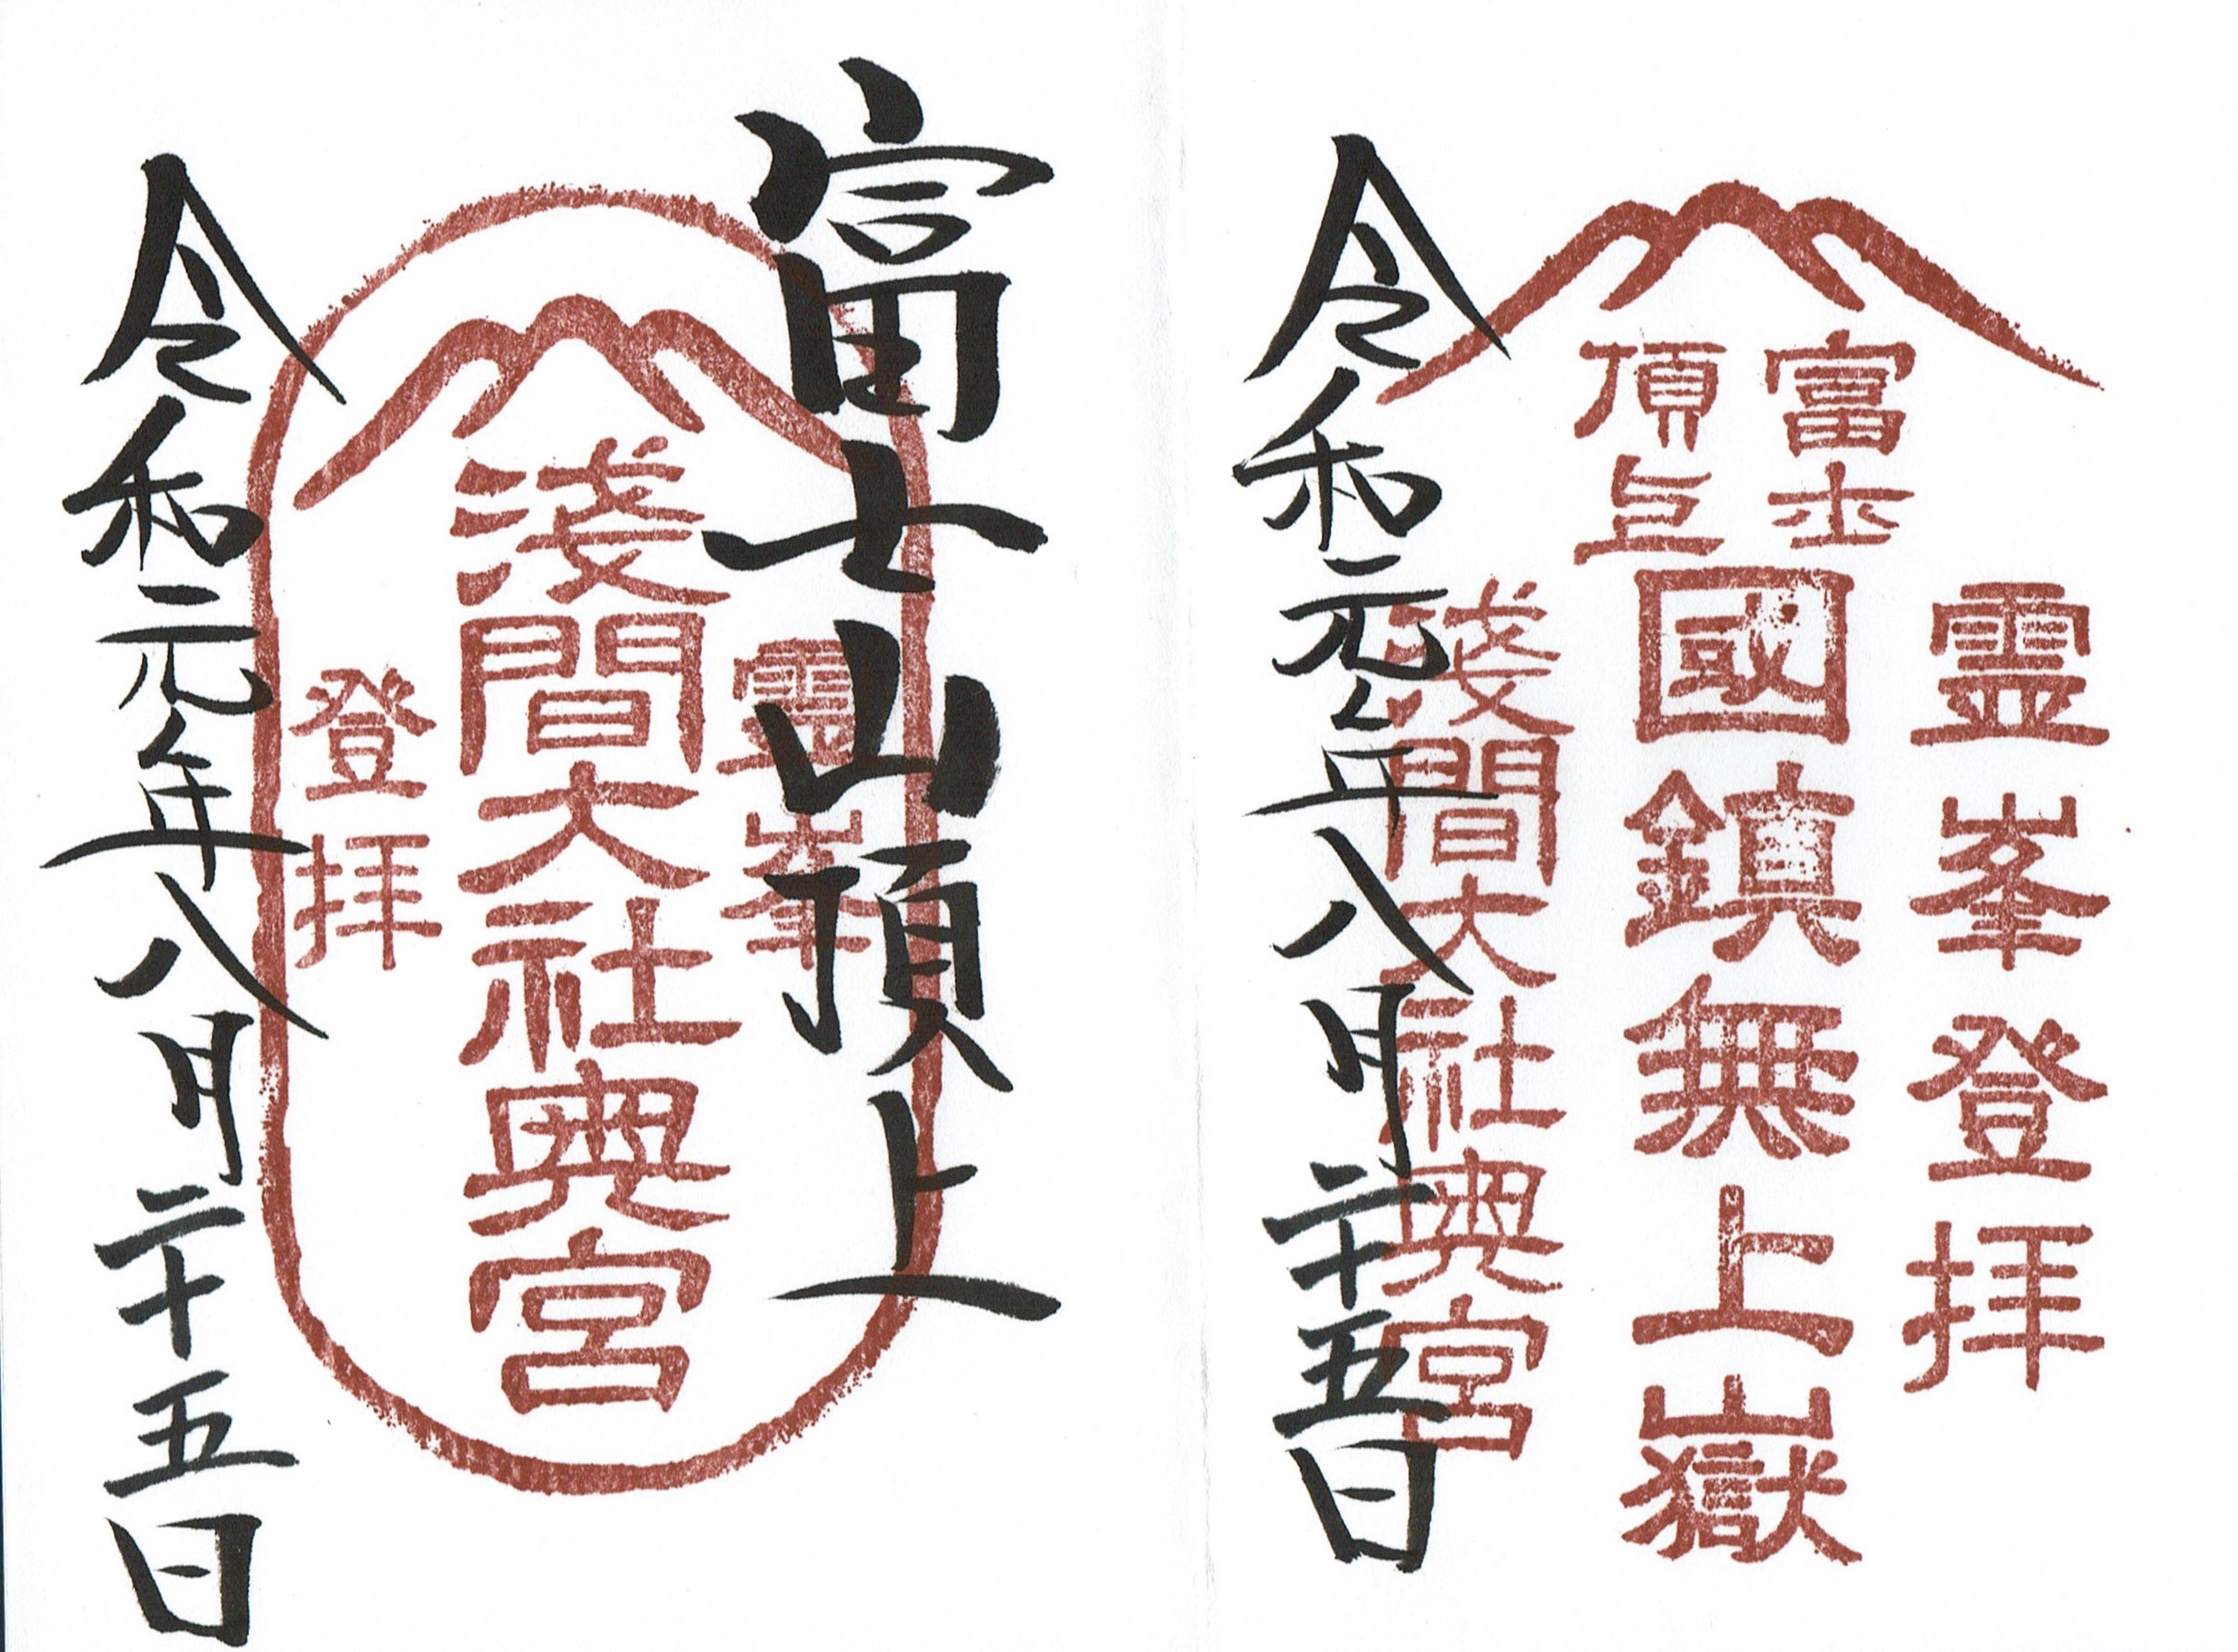 霊峯登拝
富士
頂上
國鎮無上嶽
淺間大社奥宮
令和元年八月二十五日
富士山頂上
霊峯
淺間大社奥宮
登拝
令和元年八月二十五日